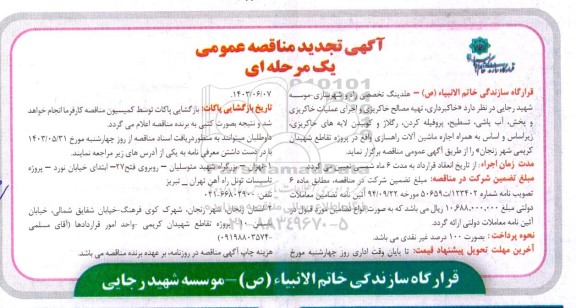 آگهی تجدید مناقصه عمومی
یک مرحله ای
قرارگاه سازندگی خاتم الانبیاء (ص) – هلدینگ تخصصی راه و شهرسازی موسسه
شهید رجایی در نظر دارد «خاکبرداری، تهیه مصالح خاکریزی و اجرای عملیات خاکریزی
و پخش، آب پاشی، تسطیح، پروفیله کردن، رگلاژ و کوبیدن لایه های خاکریزی
زیراساس و اساس به همراه اجاره ماشین آلات راهسازی واقع در پروژه تقاطع شهیدان
کریمی شهر زنجان» را از طریق آگهی عمومی مناقصه برگزار نماید.
مدت زمان اجراء: از تاریخ انعقاد قرارداد به مدت ۶ ماه شمسی تعیین می گردد.
مبلغ تضمین شرکت در مناقصه: مبلغ تضمین شرکت در مناقصه، مطابق ماده ۶
تصویب نامه شماره ۱۲۳۴۰۲/ت۵۰۶۵۹ه مورخه ۹۴/۰۹/۲۲ آئین نامه تضامین معاملات
دولتی مبلغ ۱۰,۶۸۸,۰۰۰,۰۰۰ ریال می باشد که به صورت انواع تضامین مورد قبول در
آئین نامه معاملات دولتی ارائه گردد.
نحوه پرداخت: بصورت ۱۰۰ درصد غیر نقدی می باشد.
آخرین مهلت تحویل پیشنهاد قیمت: تا پایان وقت اداری روز چهارشنبه مورخ
۱۴۰۳/۰۶/۰۷.
تاریخ بازگشایی پاکات: بازگشایی پاکات توسط کمیسیون مناقصه کارفرما انجام خواهد
شد و نتیجه بصورت کتبی به برنده مناقصه اعلام می گردد.
داوطلبان میتوانند به منظور دریافت اسناد مناقصه از روز چهارشنبه مورخ ۱۴۰۳/۰۵/۳۱
با در دست داشتن معرفی نامه به یکی از آدرس های زیر مراجعه نمایند.
۱-تهران – بزرگراه شهید متوسلیان – روبروی فتح۲۷– ابتدای خیابان نورد – پروژه
تاسیسات تونل راه آهن تهران _ تبریز
تلفن: ۶۶۸۰۳۹۰۰-۰۲۱
۲-استان زنجان، شهر زنجان، شهرک کوی فرهنگ-خیابان شقایق شمالی، خیابان
۱۰- پروژه تقاطع شهیدان کریمی -واحد امور قراردادها (آقای مسلمی
۰۹۱۹۸۸۰۳۵۷۴)
هزینه چاپ آگهی مناقصه در روزنامه، بر عهده برنده مناقصه می باشد.
قرارگاه سازندگی خاتم الانبیاء (ص) – موسسه شهید رجایی